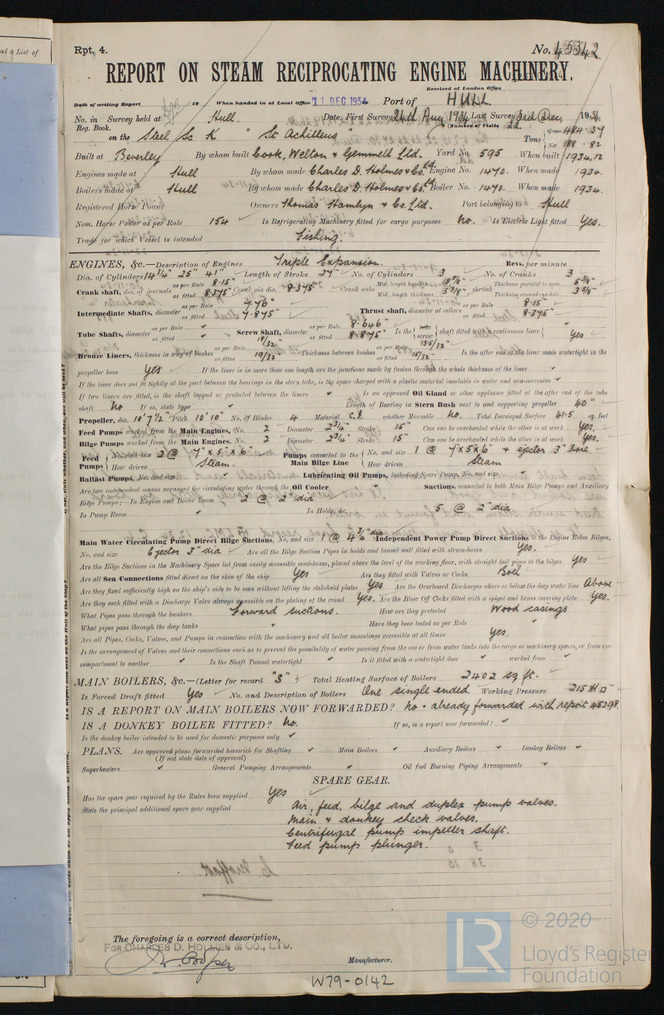 Rpt. 4. No. 45342
REPORT ON STEAM RECIPROCATING ENGINE MACHINERY.
Received at London Office
Date of writing Report 19 When handed in at Local Office 11 DEC 1934 Port of HULL
No. in Survey held at Hull. Date, First Survey 24th Aug 1934 Last Survey 3rd Dec, 1934
Reg. Book. (Number of Visits
on the Steel Sc K "St Achilleus" Tons Gross 484.37 Net 188.82
Built at Beverley By whom built Cook, Welton & Gemmell Ltd. Yard No. 595 When built 1934.12
Engines made at Hull By whom made Charles D. Holmes & Co Ltd. Engine No. 1470. When made 1934.
Boilers made at Hull By whom made Charles D. Holmes & Co Ltd. Boiler No. 1470. When made 1934.
Registered Horse Power Owners Thomas Hamlyn & Co. Ltd. Port belonging to Hull
Nom. Horse Power as per Rule 154 Is Refrigerating Machinery fitted for cargo purposes No. Is Electric Light fitted Yes.
Trade for which Vessel is intended Fishing.
ENGINES, &c.—Description of Engines Triple Expansion. Revs. per minute
Dia. of Cylinders 14¼" 25" 41" Length of Stroke 27" No. of Cylinders 3 No. of Cranks 3
Crank shaft, dia. of journals as per Rule 8.15" as fitted 8.375" Crank pin dia. 8.375" Crank webs
Intermediate Shafts, diameter as per Rule 7.76" as fitted 7.875" Thrust shaft, diameter at collars as per Rule 8.15" as fitted 8.375"
Tube Shafts, diameter as per Rule as fitted Screw Shaft, diameter as per Rule 8.646" as fitted 8.875" Is the screw shaft fitted with a continuous liner Yes
Bronze Liners, thickness in way of bushes as per Rule as fitted 19/32" Thickness between bushes as per Rule as fitted 15/32" Is the after end of the liner made watertight in the
propeller boss Yes If the liner is in more than one length are the junctions made by fusion through the whole thickness of the liner
If the liner does not fit tightly at the part between the bearings in the stern tube, is the space charged with a plastic material insoluble in water and non-corrosive
If two liners are fitted, is the shaft lapped or protected between the liners Is an approved Oil Gland or other appliance fitted at the after end of the tube
shaft No If so, state type Length of Bearing in Stern Bush next to and supporting propeller 40"
Propeller, dia. 10' 7½" Pitch 10' 10" No. of Blades 4 Material C.I. whether Moveable No. Total Developed Surface 41.5 sq. feet
Feed Pumps worked from the Main Engines, No. 2 Diameter 2¾" Stroke 15" Can one be overhauled while the other is at work Yes.
Bilge Pumps worked from the Main Engines, No. 2 Diameter 2¾" Stroke 15" Can one be overhauled while the other is at work Yes.
Feed Pumps No. and size 2 @ 7" x 5" x 6" Pumps connected to the Main Bilge Line No. and size 1 @ 7" x 5" x 6" + ejector 3" bore.
How driven Steam. How driven Steam
Ballast Pumps, No. and size Lubricating Oil Pumps, including Spare Pump, No. and size
Are two independent means arranged for circulating water through the Oil Cooler Suctions, connected to both Main Bilge Pumps and Auxiliary
Bilge Pumps;—In Engine and Boiler Room 2 @ 2" dia
In Pump Room In Holds, &c. 5 @ 2" dia.
Main Water Circulating Pump Direct Bilge Suctions, No. and size 1 @ 4¾" dia Independent Power Pump Direct Suctions to the Engine Room Bilges,
No. and size Ejector 3" dia Are all the Bilge Suction Pipes in holds and tunnel well fitted with strum-boxes Yes.
Are the Bilge Suctions in the Machinery Space led from easily accessible mud-boxes, placed above the level of the working floor, with straight tail pipes to the bilges Yes
Are all Sea Connections fitted direct on the skin of the ship Yes Are they fitted with Valves or Cocks Both
Are they fixed sufficiently high on the ship's side to be seen without lifting the stokehold plates Yes Are the Overboard Discharges above or below the deep water line Above
Are they each fitted with a Discharge Valve always accessible on the plating of the vessel Yes. Are the Blow Off Cocks fitted with a spigot and brass covering plate Yes.
What Pipes pass through the bunkers Forward suctions. How are they protected Wood casings
What pipes pass through the deep tanks Have they been tested as per Rule
Are all Pipes, Cocks, Valves, and Pumps in connection with the machinery and all boiler mountings accessible at all times Yes.
Is the arrangement of Valves and their connections such as to prevent the possibility of water passing from the sea or from water tanks into the cargo or machinery spaces, or from one
compartment to another Is the Shaft Tunnel watertight Is it fitted with a watertight door worked from
MAIN BOILERS, &c.—(Letter for record "S") Total Heating Surface of Boilers 2402 sq ft.
Is Forced Draft fitted Yes No. and Description of Boilers One single ended. Working Pressure 215 #
IS A REPORT ON MAIN BOILERS NOW FORWARDED? No. already forwarded with report 45298.
IS A DONKEY BOILER FITTED? No. If so, is a report now forwarded?
Is the donkey boiler intended to be used for domestic purposes only
PLANS. Are approved plans forwarded herewith for Shafting Main Boilers Auxiliary Boilers Donkey Boilers
(If not state date of approval)
Superheaters General Pumping Arrangements Oil fuel Burning Piping Arrangements
SPARE GEAR.
Has the spare gear required by the Rules been supplied Yes
State the principal additional spare gear supplied Air, feed, bilge and duplex pump valves.
Main & donkey check valves.
Centrifugal pump impeller shaft.
Feed pump plunger.
The foregoing is a correct description,
FOR CHARLES D. HOLMES & CO., LTD.
Manufacturer.
W79-0142
LR © 2020
Lloyd's Register
Foundation